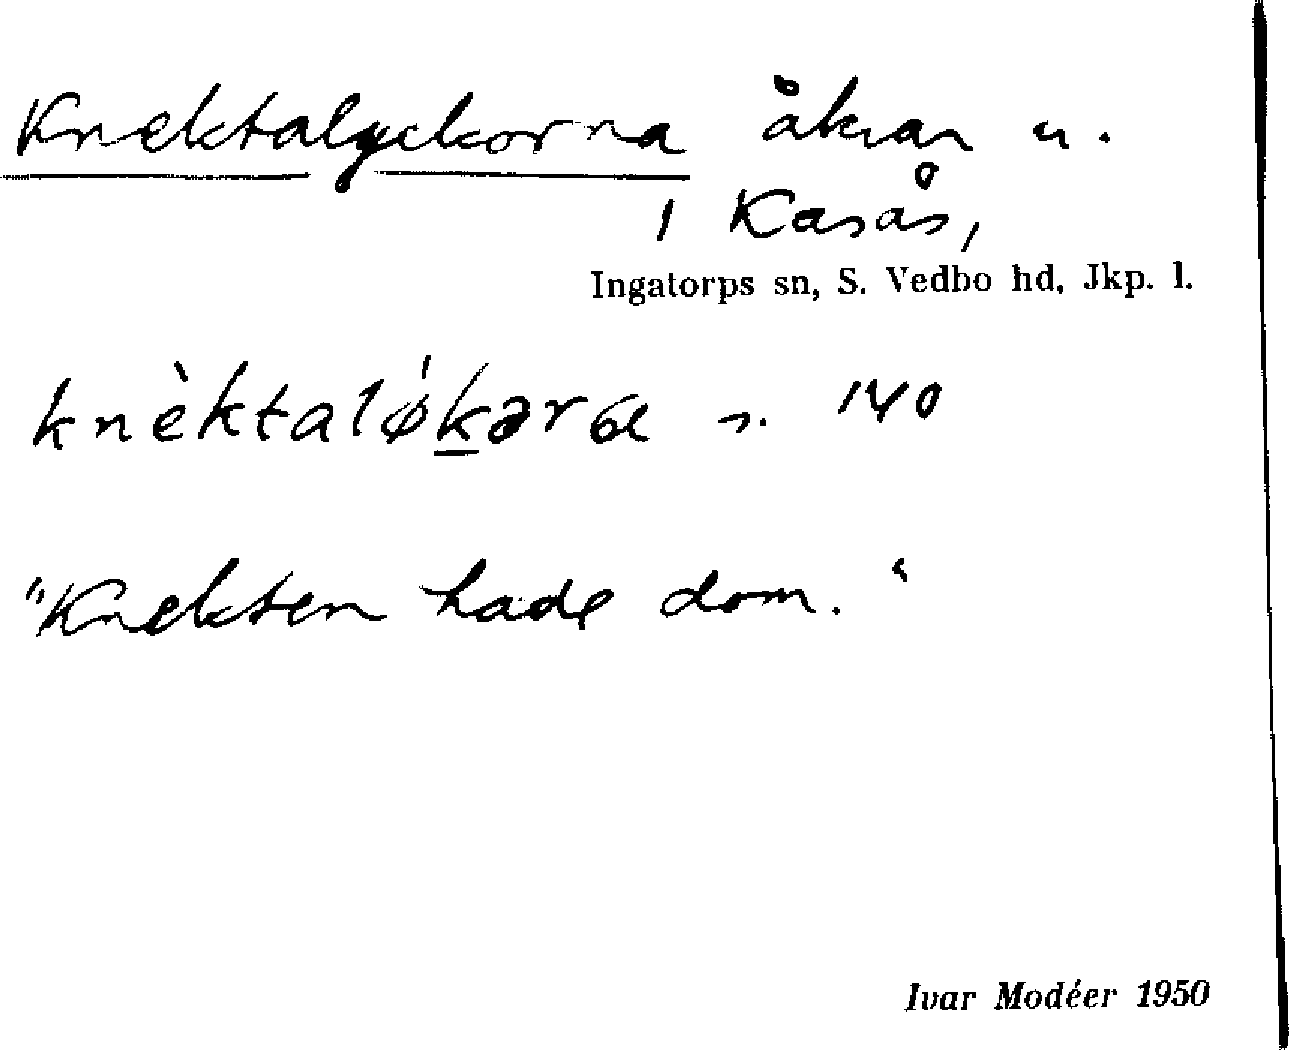 Knektalyckorna åkrar n.
1 Kasås,
Ingatorps sn, S. Vedbo hd, Jkp. l.
knèktaló̸kərɢɑ s. 140
"Knekten hade dom."
Ivar Modéer 1950